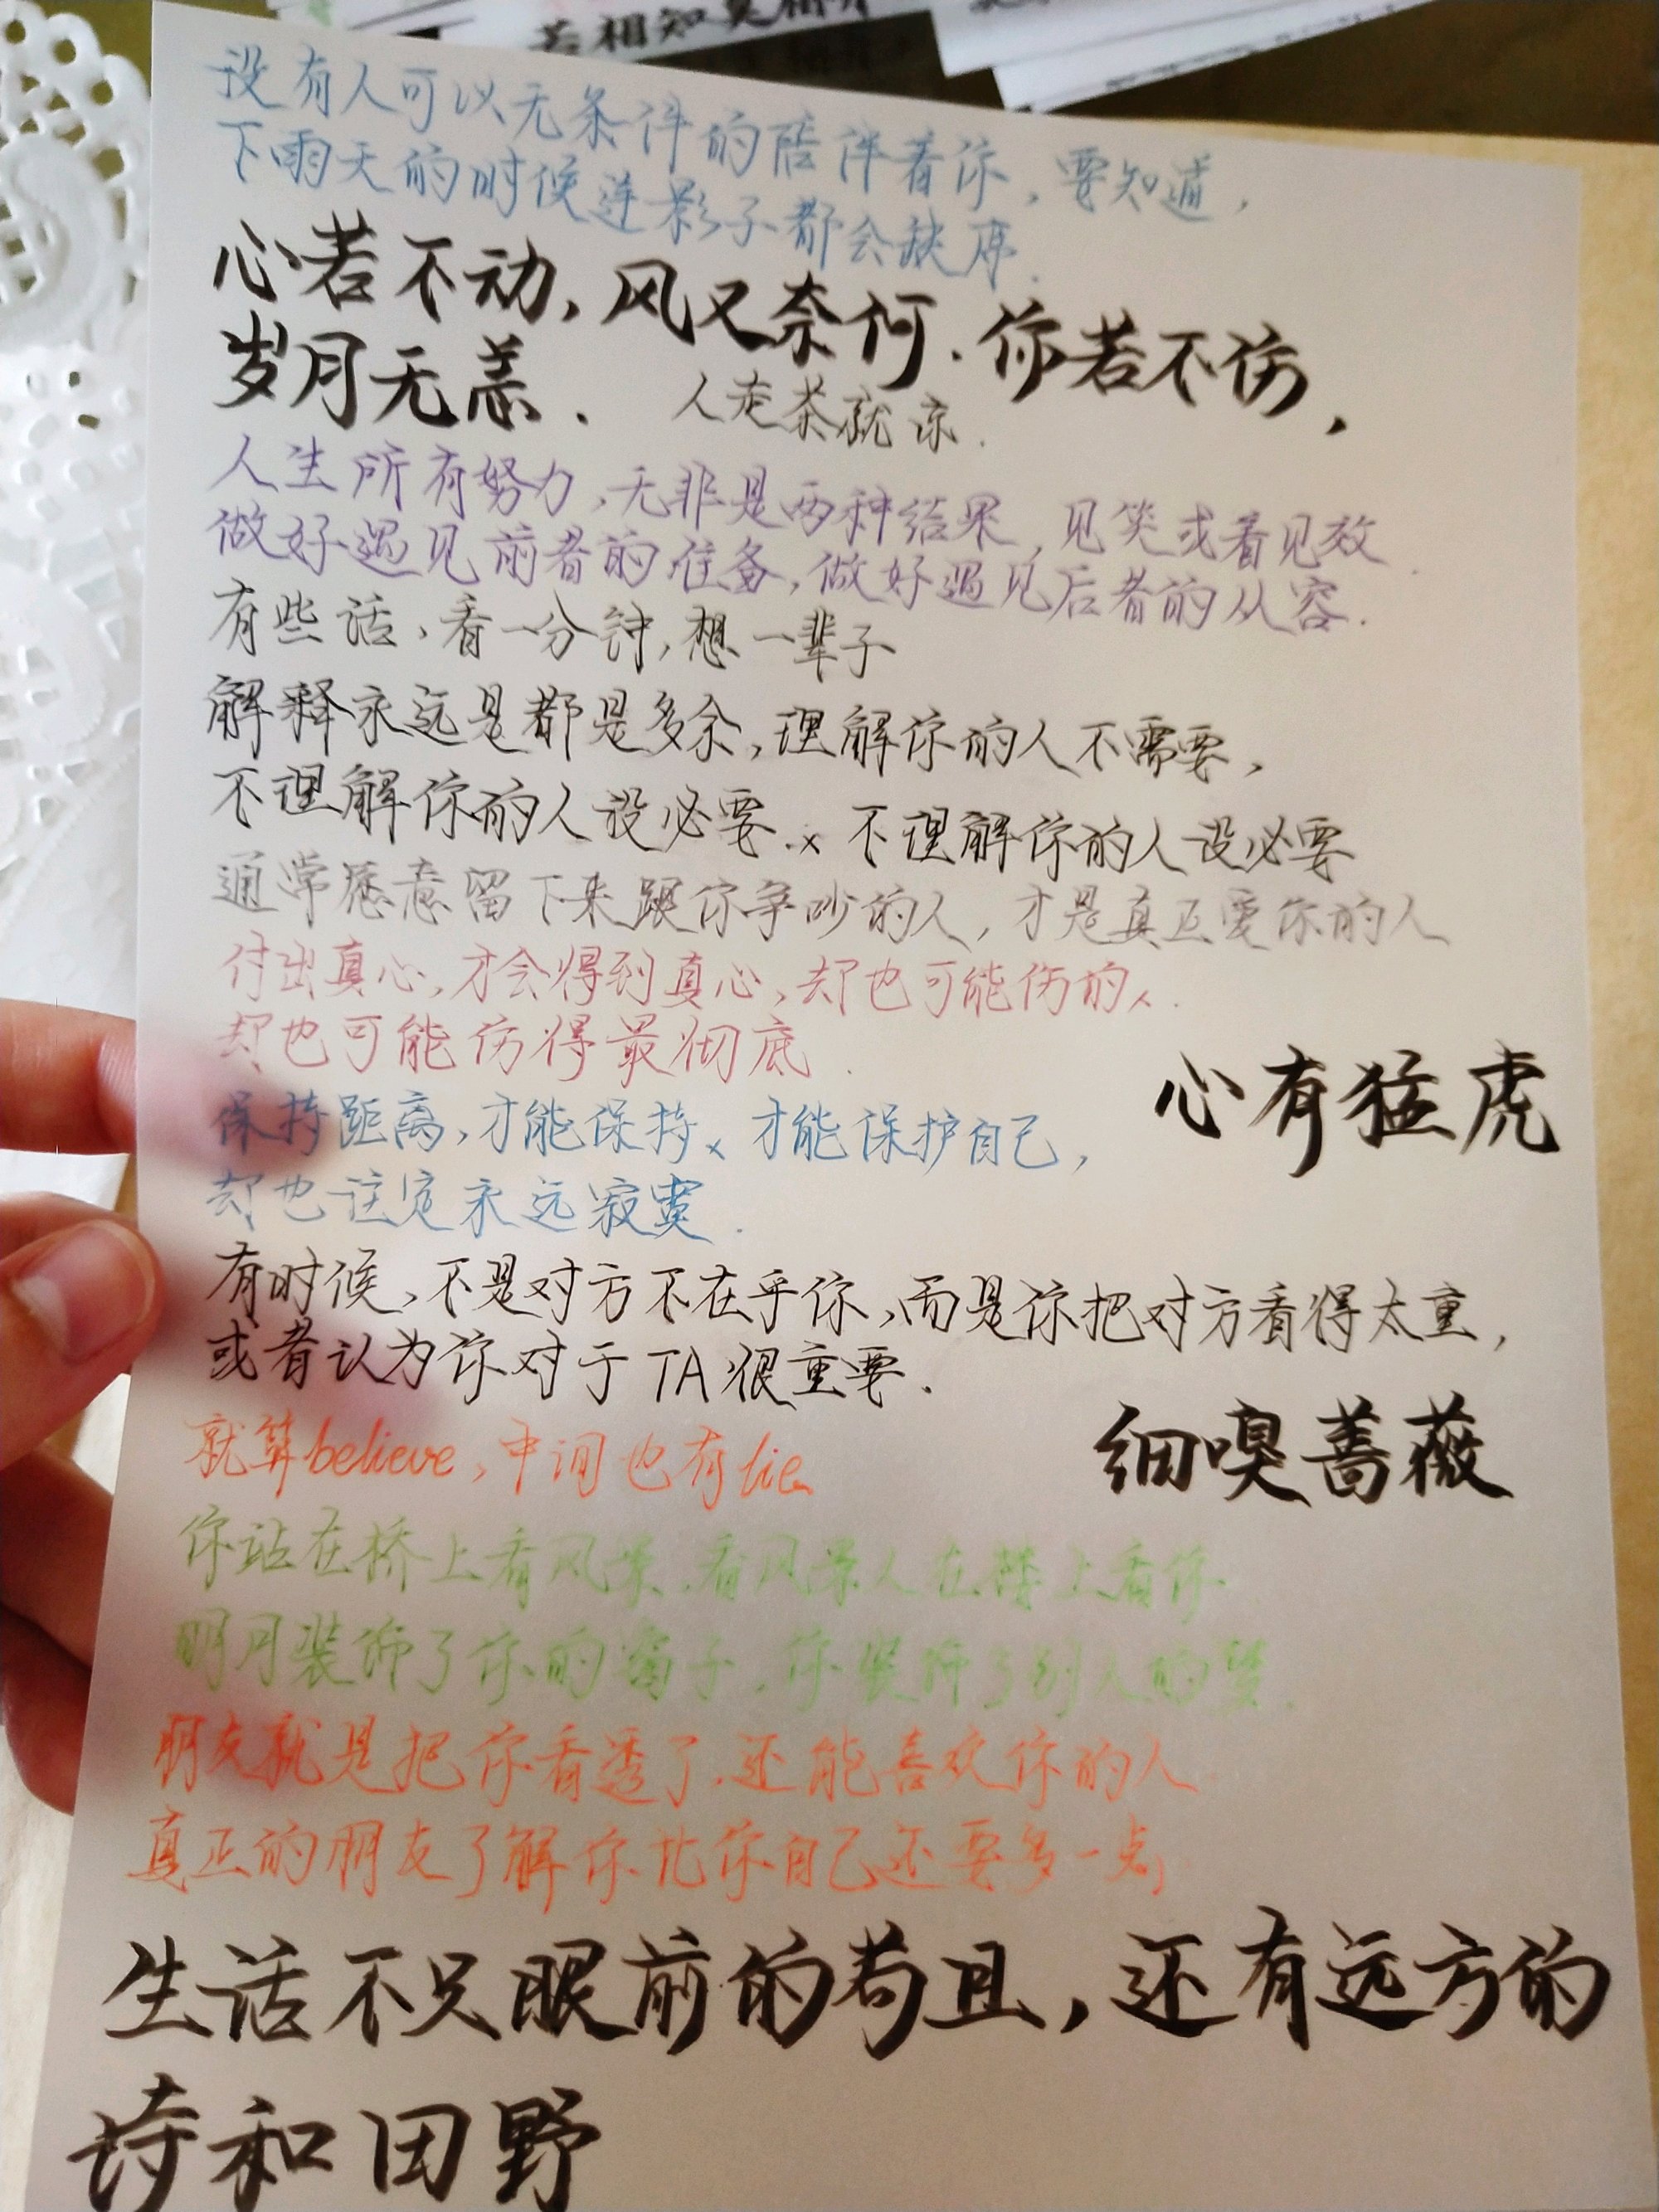 若相知莫相
没有人可以无条件的陪伴着你，要知道，
下雨天的时候连影子都会缺席.
心若不动，风又奈何.你若不伤，
岁月无恙. 人走茶就凉.
人生所有努力，无非是两种结果，见笑或看见效.
做好遇见前者的准备，做好遇见后者的从容.
有些话，看一分钟，想一辈子
解释永远是都是多余，理解你的人不需要，
不理解你的人没必要.x 不理解你的人没必要
通常愿意留下来跟你争吵的人，才是真正爱你的人
付出真心，才会得到真心，却也可能伤的x.
却也可能伤得最彻底.
心有猛虎
保持距离，才能保持x 才能保护自己，
却也注定永远寂寞.
有时候，不是对方不在乎你，而是你把对方看得太重，
或者认为你对于TA很重要.
细嗅蔷薇
就算believe，中间也有lie.
你站在桥上看风景，看风景人在楼上看你.
明月装饰了你的窗子，你装饰了别人的梦.
朋友就是把你看透了，还能喜欢你的人.
真正的朋友了解你比你自己还要多一点.
生活不只眼前的苟且，还有远方的
诗和田野